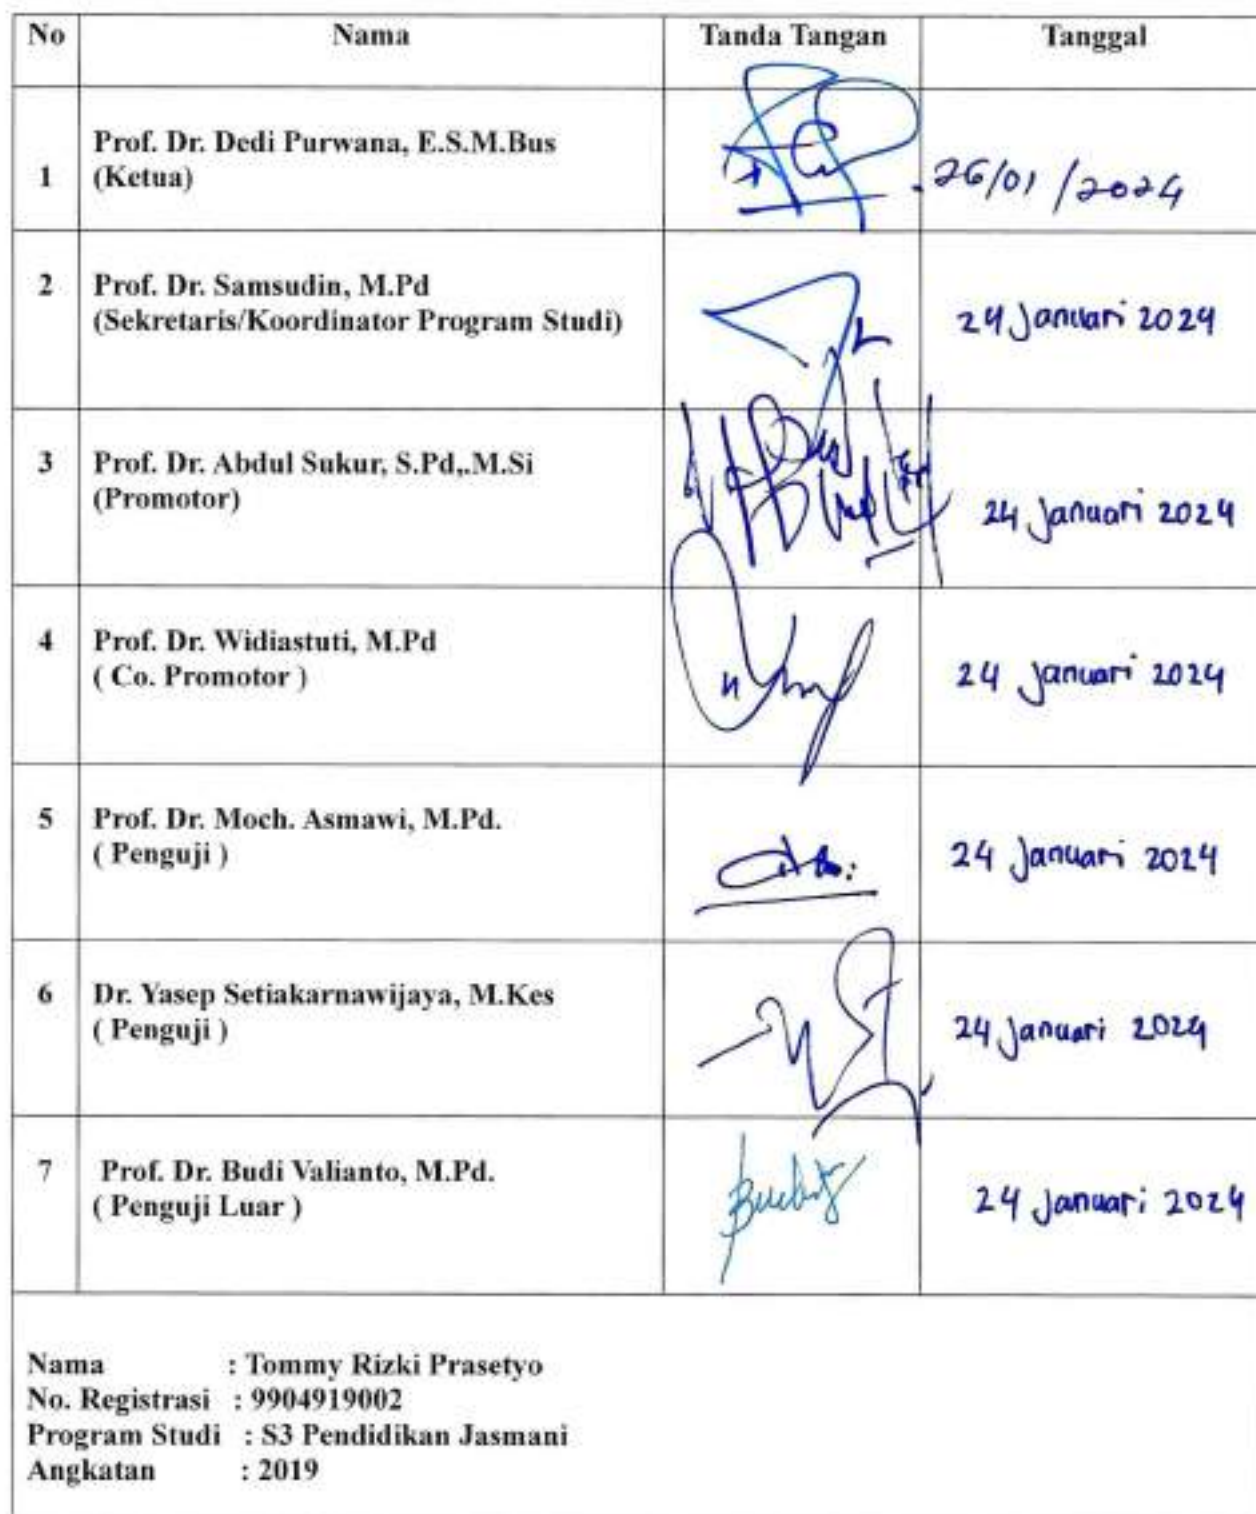 No Nama Tanda Tangan Tanggal
Prof. Dr. Dedi Purwana, E.S.M.Bus
1 (Ketua) 26/01/2024
2 Prof. Dr. Samsudin, M.Pd
(Sekretaris/Koordinator Program Studi) 24 Januari 2024
3 Prof. Dr. Abdul Sukur, S.Pd,.M.Si
(Promotor) 24 Januari 2024
4 Prof. Dr. Widiastuti, M.Pd
( Co. Promotor ) 24 Januari 2024
5 Prof. Dr. Moch. Asmawi, M.Pd.
( Penguji ) 24 Januari 2024
6 Dr. Yasep Setiakarnawijaya, M.Kes
( Penguji ) 24 Januari 2024
7 Prof. Dr. Budi Valianto, M.Pd.
( Penguji Luar ) 24 Januari 2024
Nama : Tommy Rizki Prasetyo
No. Registrasi : 9904919002
Program Studi : S3 Pendidikan Jasmani
Angkatan : 2019